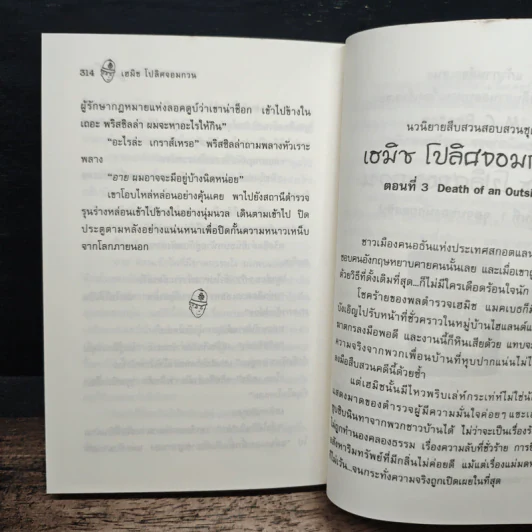 314 เฮมิช โปลิศจอมกวน
ผู้รักษากฎหมายแห่งลอคดูบ์ว่าเขาน่าช็อก เข้าไปข้างใน
เถอะ พริสซิลล่า ผมจะหาอะไรให้กิน"
"อะไรล่ะ เกราส์เหรอ" พริสซิลล่าถามพลางหัวเราะ
พลาง
"อาย ผมอาจจะมีอยู่บ้างนิดหน่อย"
เขาโอบไหล่หล่อนอย่างคุ้นเคย พาไปยังสถานีตำรวจ
รุนร่างหล่อนเข้าไปข้างในอย่างนุ่มนวล เดินตามเข้าไป ปิด
ประตูตามหลังอย่างแน่นหนาเพื่อปิดกั้นความหนาวเหน็บ
จากโลกภายนอก
นวนิยายสืบสวนสอบสวนชุด
เฮมิช โปลิศจอม
ตอนที่ 3 Death of an Outsi
ชาวเมืองคนอธันแห่งประเทศสกอตแลน
ชอบคนอังกฤษหยาบคายคนนั้นเลย และเมื่อเขาถู
ด้วยวิธีที่ดั้งเดิมที่สุด...ก็ไม่มีใครเดือดร้อนใจนัก
โชคร้ายของพลตำรวจเฮมิช แมคเบธก็มี
บังเอิญไปรับหน้าที่ชั่วคราวในหมู่บ้านไฮแลนด์แ
ฆาตกรลงมือพอดี และงานนี้ก็หินเสียด้วย แทบจะ
ความจริงจากพวกเพื่อนบ้านที่หุบปากแน่นไม่ใ
ลงมือสืบสวนคดีนี้ด้วยซ้ำ
แต่เฮมิชนั้นมีไหวพริบเล่ห์กระเท่ห์ไม่ใช่น้
แสดงมาดของตำรวจผู้มีความมั่นใจค่อยๆ
ซุบซิบนินทาจากพวกชาวบ้านได้ ไม่ว่าจะเป็นเรื่องร้
ไม่ถูกทำนองคลองธรรม เรื่องความลับที่ชั่วร้าย การ
อสังหาริมทรัพย์ที่มีกลิ่นไม่ค่อยดี แม้แต่เรื่องแม่มด
จนกระทั่งความจริงถูกเปิดเผยในที่สุด